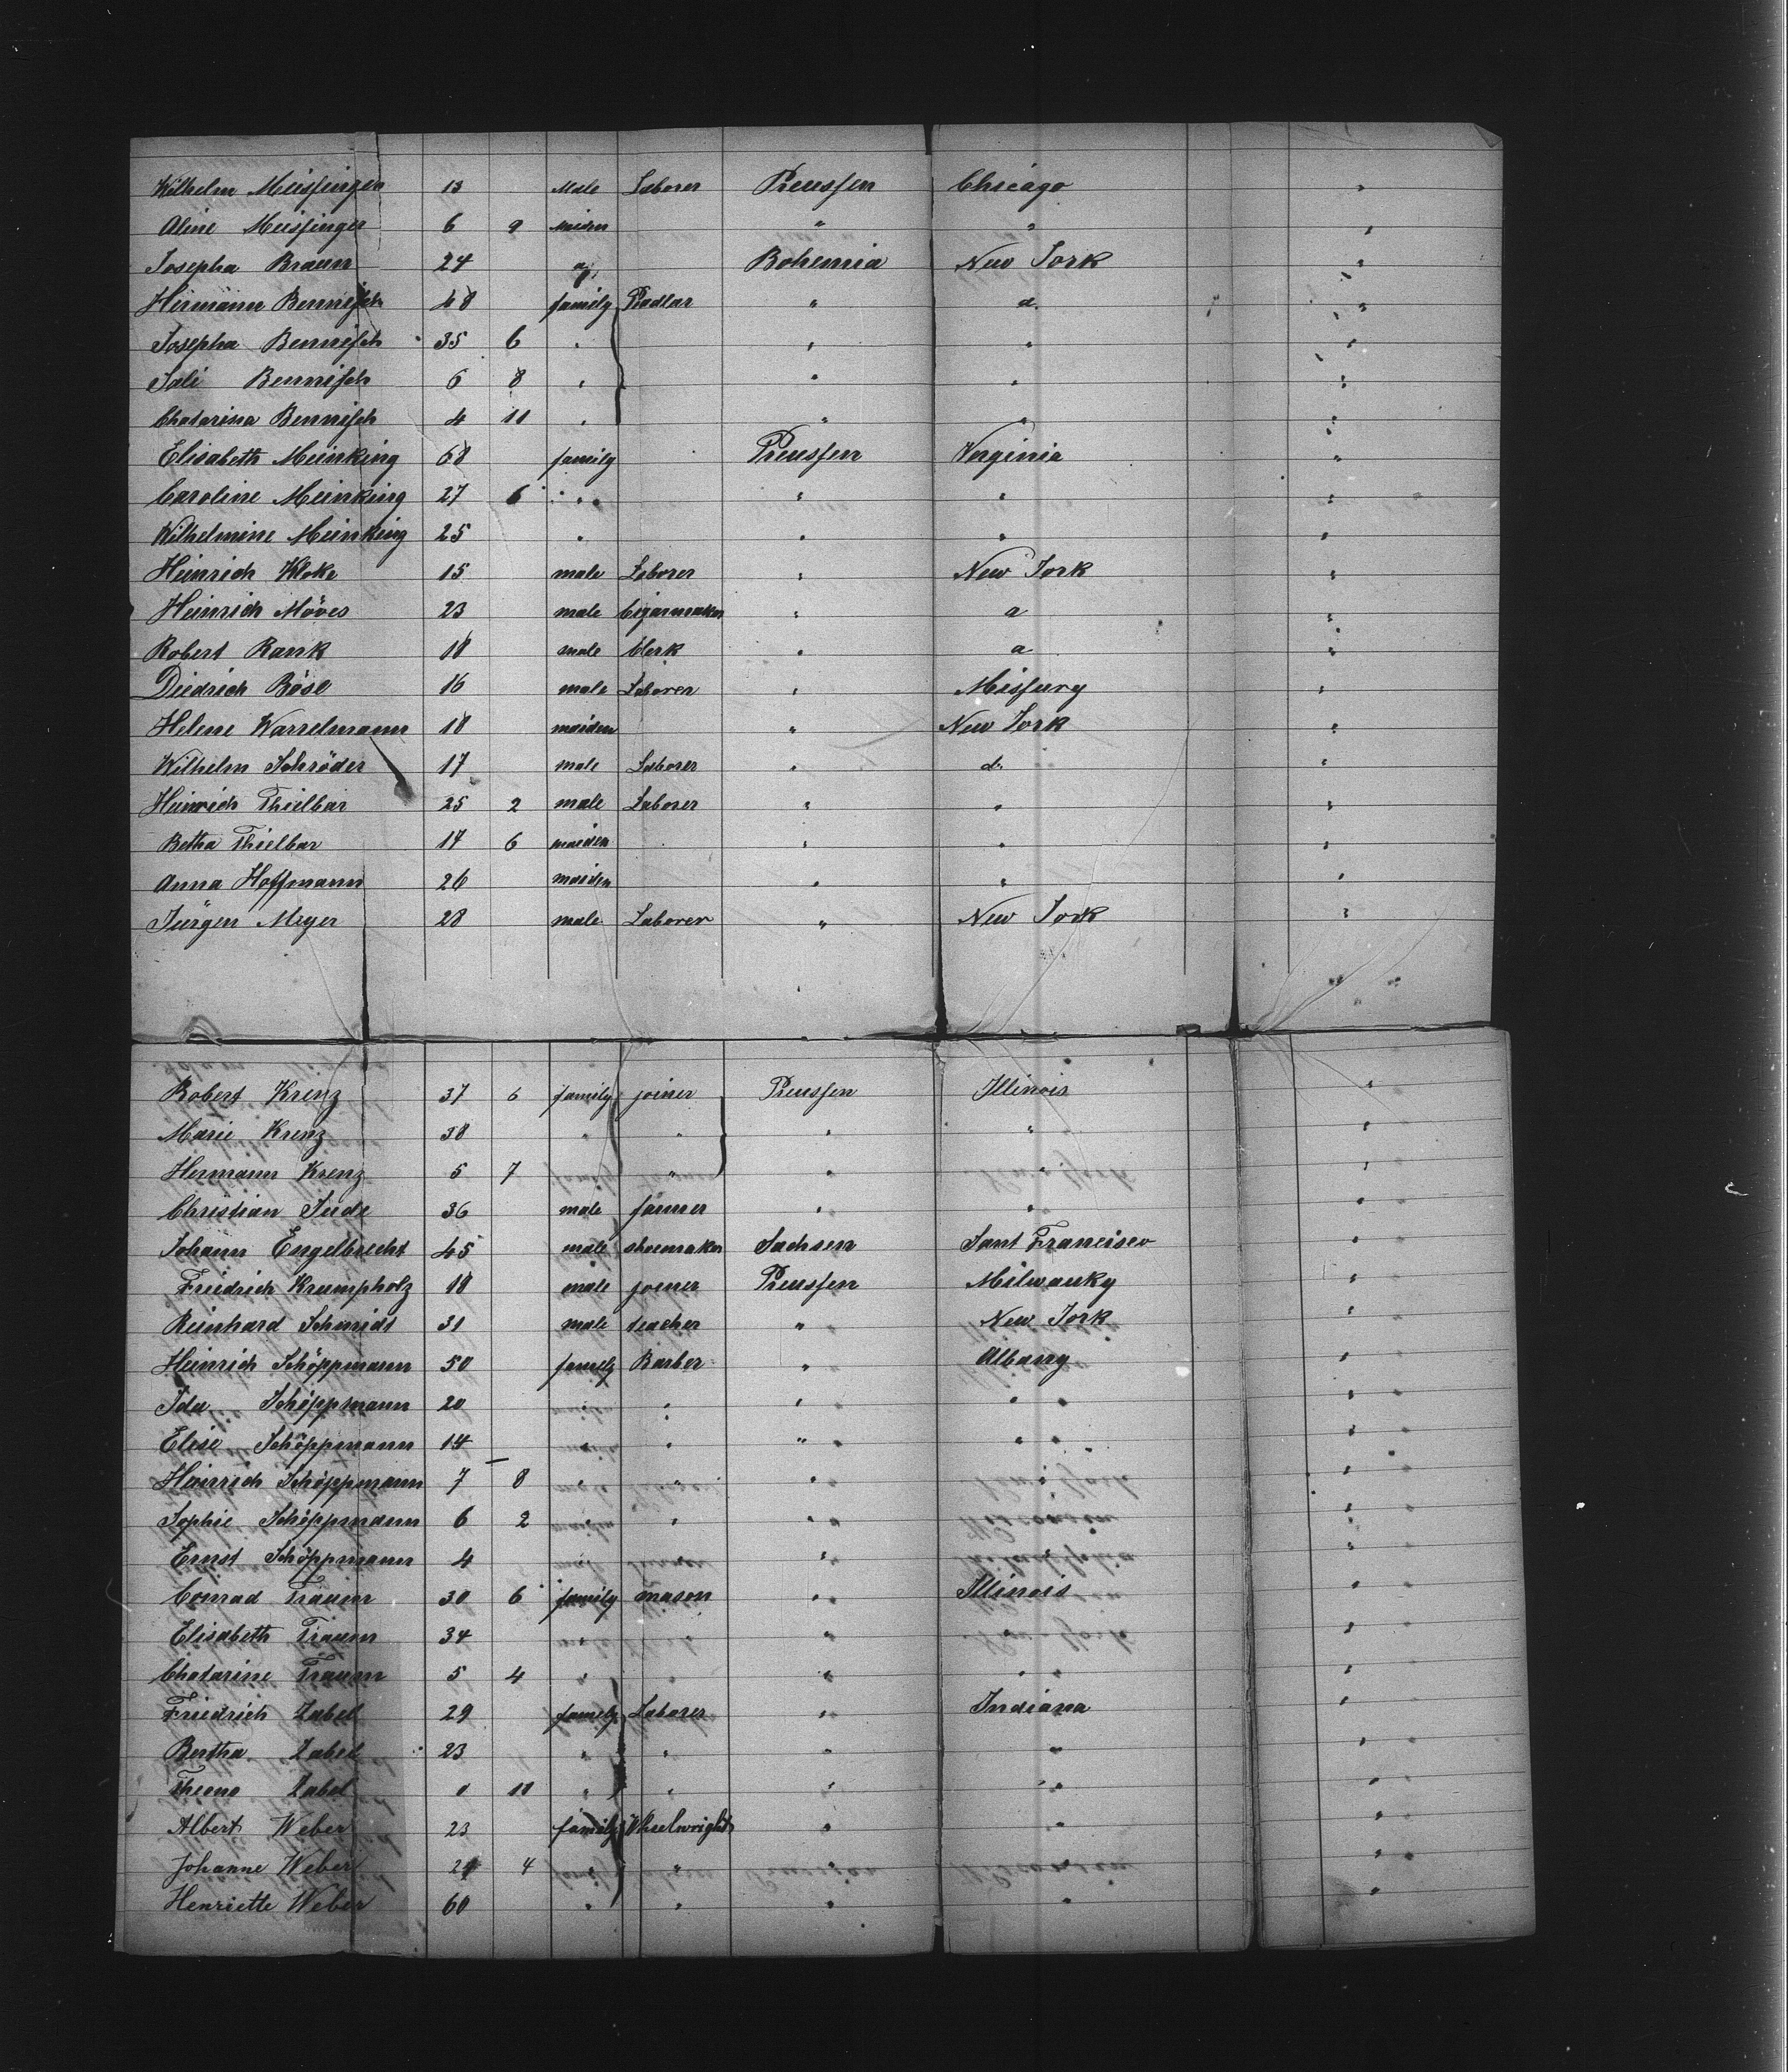 Wilhelm Meissinger 13 Male Laborer Preussen Chicago "
Aline Meissinger 6 9 maiden " " "
Josepha Braun 24 " Bohemia New York "
Hermann Bennisch 48 family Pedlar " d. "
Josepha Bennisch 35 6 " " " "
Sali Bennisch 6 8 " " " "
Chatarina Bennisch 4 11 " " " "
Elisabeth Meinking 68 family Preussen Verginia "
Caroline Meinking 27 6 " " " "
Wilhelmine Meinking 25 " " " "
Heinrich Kloke 15 male Laborer " New York "
Heinrich Möves 23 male Cigarmaker " a "
Robert Rank 18 male Clerk " a "
Diedrich Böse 16 male Laborer " Missury "
Helene Warrelmann 18 maiden " New York "
Wilhelm Schröder 17 male Laborer " d. "
Heinrich Thielbar 25 2 male Laborer " " "
Betha Thielbar 17 6 maiden " " "
Anna Hoffmann 26 maiden " " "
Jürgen Meyer 28 male Laborer " New York "
Robert Krenz 37 6 family joiner Preussen Illinois "
Marie Krenz 38 " " " " "
Hermann Krenz 5 7 " " " "
Christian 36 male farmer " " "
Johann Engelbrecht 45 male shoemaker Sachsen Sant Francisco "
Friedrich Krumpholz 18 male joiner Preussen Milwauky "
Reinhard Schmidt 31 male teacher " New York "
Heinrich Schöppmann 50 family Barber " Albany "
Ida Schöppmann 20 " " " " "
Elise Schöppmann 14 " " " " "
Heinrich Schöppmann 7 8 " " " " "
Sophie Schöppmann 6 2 " " " "
Ernst Schöppmann 4 " "
Conrad Traum 30 6 family mason " Illinois "
Elisabeth Traum 34 " " " " "
Chatarine Traum 5 4 " " " " "
Friedrich Zabel 29 family Laborer " Indiana "
Bertha Zabel 23 " " " " "
Zabel 0 11 " " " " "
Albert Weber 23 family Wheelwright " " "
Johanne Weber 24 4 " " " "
Henriette Weber 60 " " " " "